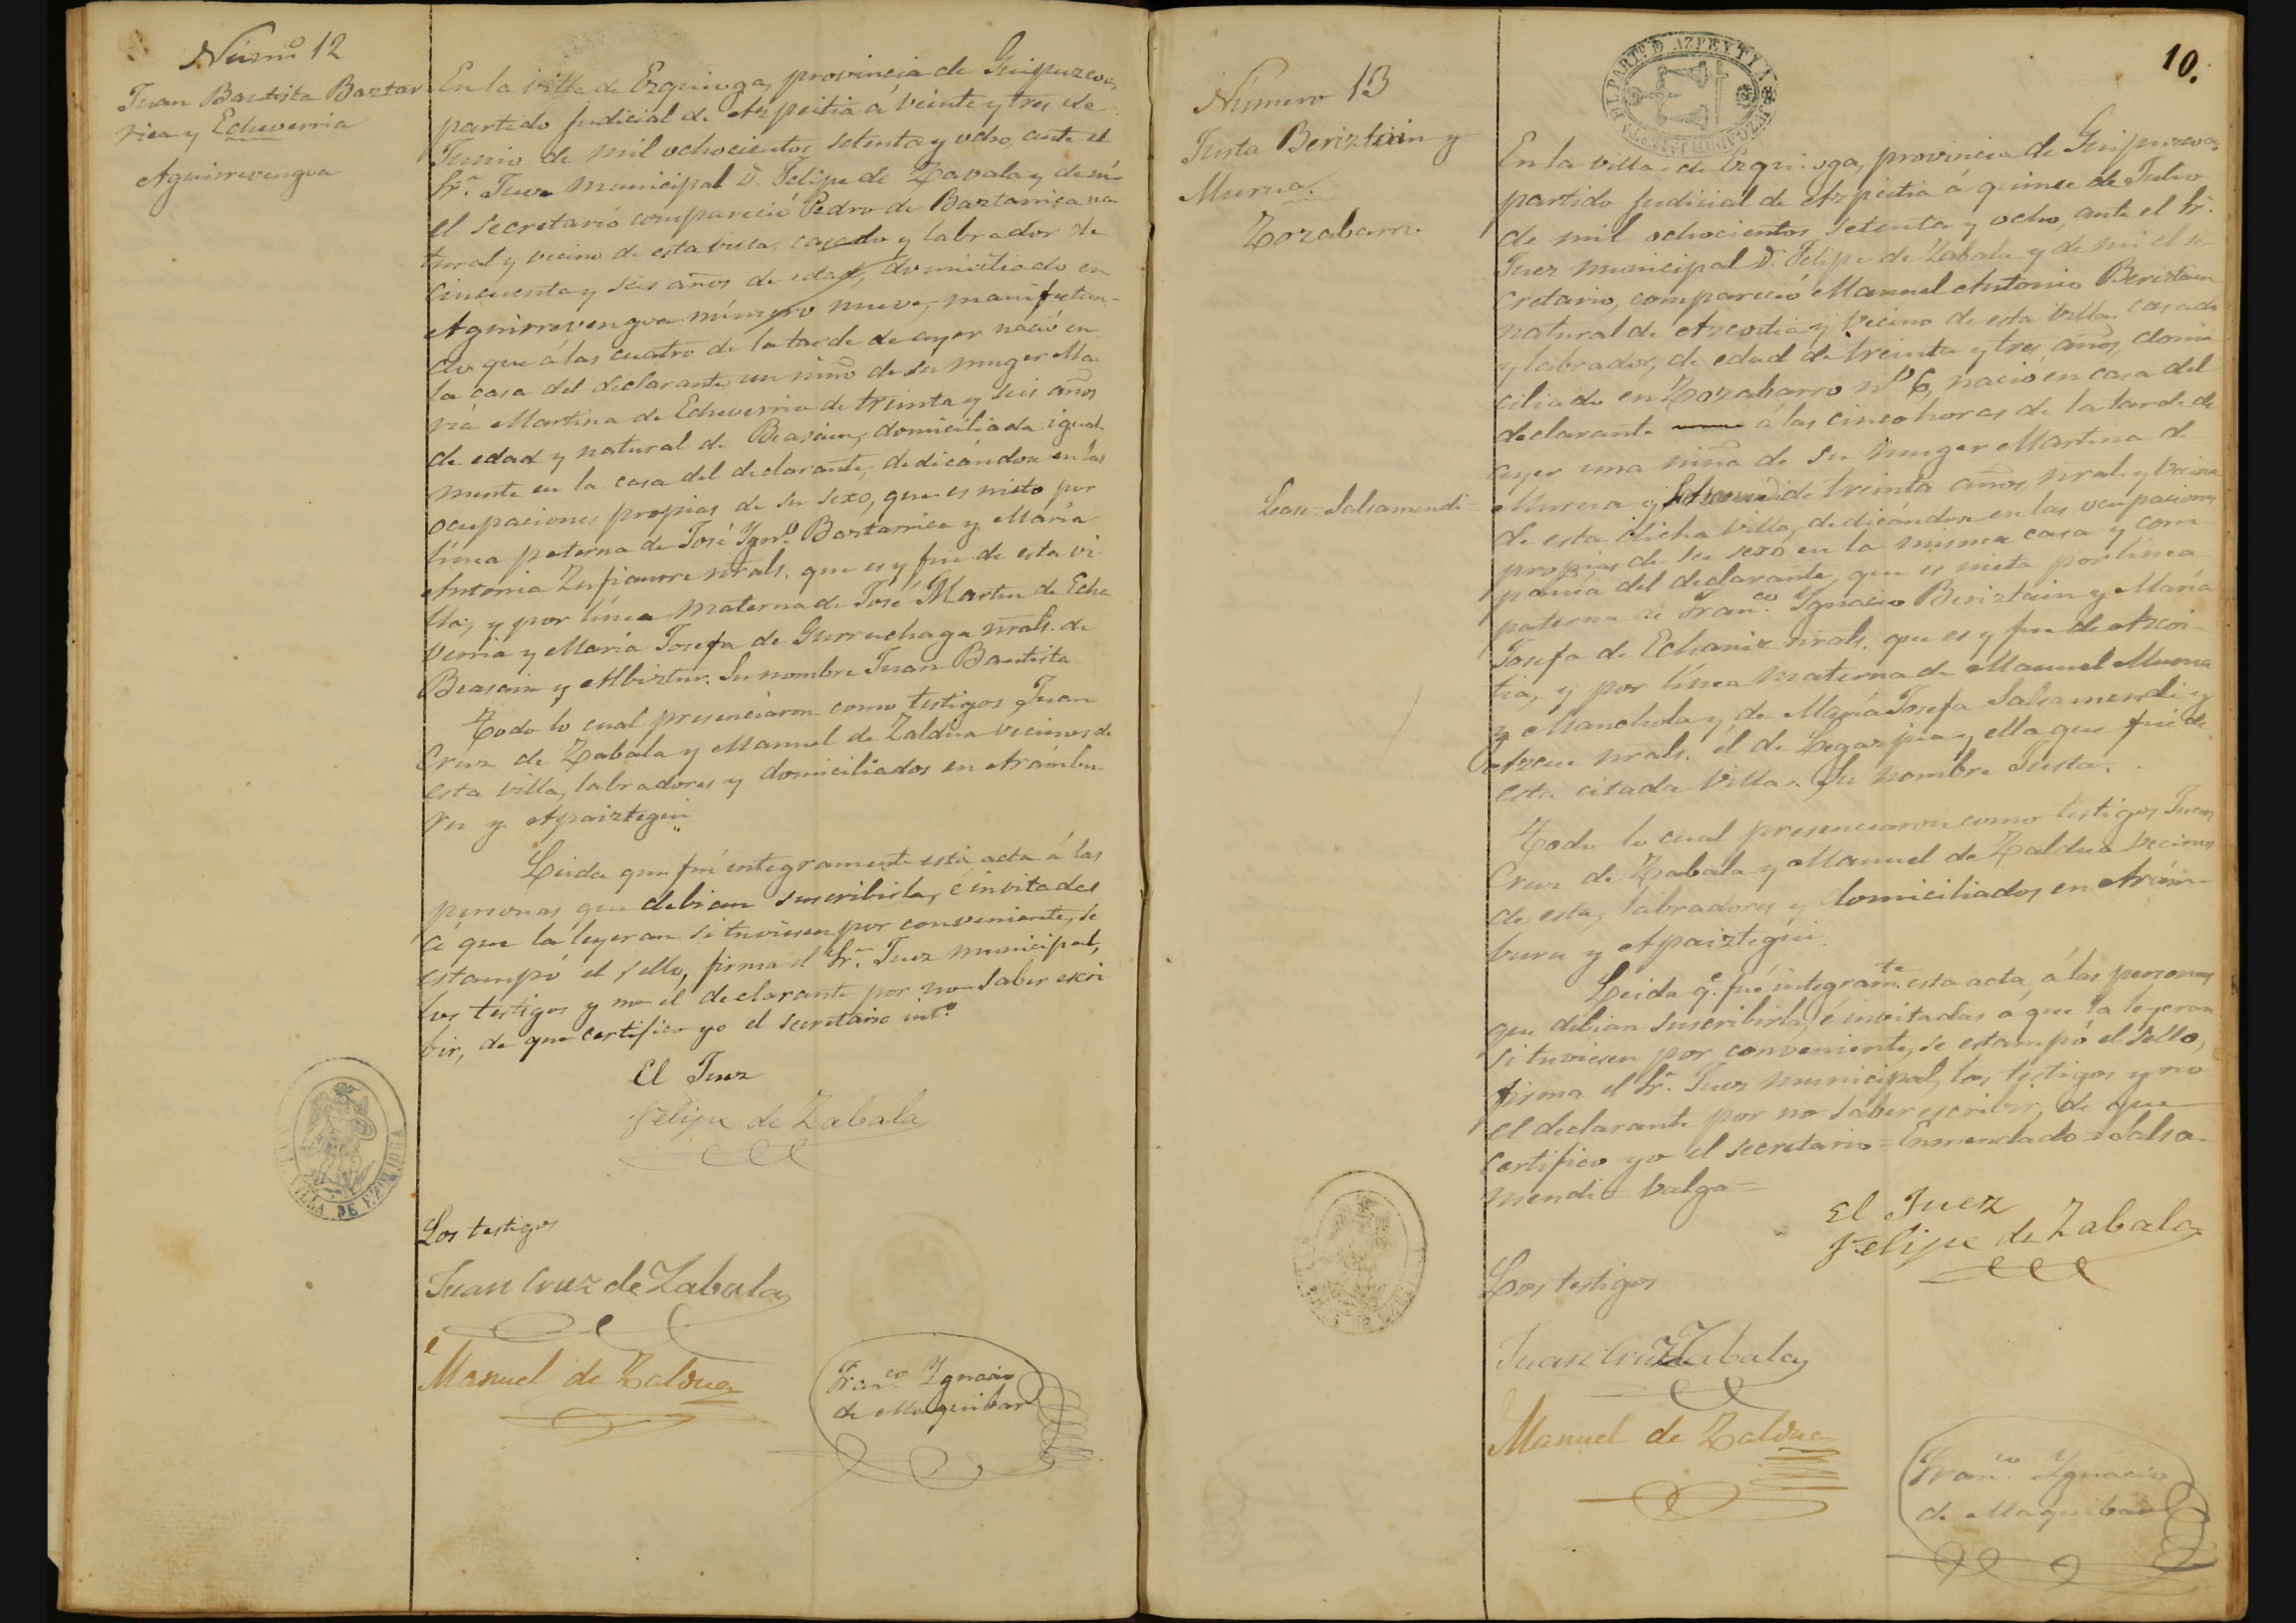 Núm.º 12
Juan Bautista Baztar
rica y Echeverria
Aguirrevengoa
En la villa de Ezquioga, provincia de Guipuzcoa,
partido judicial de Azpeitia á veinte y tres de
Junio de mil ochocientos setenta y ocho, ante el
Sr. Juez municipal D. Felipe de Zavala y de mí
el secretario compareció Pedro de Baztarrica na-
tural y vecino de esta villa, casado y labrador de
cincuenta y seis años de edad, domiciliado en
Aguirrevengoa número nueve, manifestan-
do que á las cuatro de la tarde de ayer nació en
la casa del declarante un niño de su muger Ma-
ria Martina de Echeverria de treinta y seis años
de edad y natural de Beasain, domiciliada igual-
mente en la casa del declarante, dedicándose en las
ocupaciones propias de su sexo, que es nieto por
línea paterna de José Ygn.º Baztarrica y María
Antonia Zufiaurre nrals. que es y fue de esta vi-
lla, y por línea materna de José Martin de Eche
verria y María Josefa de Gurruchaga nrals. de
Beasain y Albiztur. Su nombre Juan Bautista
Todo lo cual presenciaron como testigos Juan
Cruz de Zabala y Manuel de Zaldua vecinos de
esta villa, labradores y domiciliados en Arámbu-
ru y Apaiztegui
Leida que fué integramente esta acta á las
personas que debian suscribirla, é invitadas
á que la leyeran si tuviesen por conveniente, se
estampó el sello, firma el Sr. Juez municipal,
los testigos y no el declarante por no saber escri
bir, de que certifico yo el secretario int.º
El Juez
Felipe de Zabala
VILLA DE EZQUIOGA
Los testigos
Juan Cruz de Zabala
Manuel de Zaldua
Fran.co Ygnacio
de Maguibar
10.
JUZGADO DEL PART.º D AZPEYTIA
Número 13
Justa Beriztain y
Murua.
Zozabarro
Lease = Salsamendi =
En la villa de Ezquioga, provincia de Guipuzcoa,
partido judicial de Azpeitia á quince de Julio
de mil ochocientos setenta y ocho, ante el Sr.
Juez municipal D. Felipe de Zabala y de mi el se-
cretario, compareció Manuel Antonio Beriztain
natural de Azcoitia y vecino de esta villa casado
y labrador, de edad de treinta y tres años, domi
ciliado en Zozabarro nº 6, nacio en casa del
declarante á las cinco horas de la tarde de
ayer una niña de su muger Martina de
Murua y de treinta años, nral. y vecina
de esta dicha villa, dedicándose en las ocupaciones
propias de su sexo en la misma casa y com-
pañía del declarante, que es nieta por línea
paterna de Fran.co Ygnacio Beriztain y María
Josefa de Echaniz nrals. que es y fue de Azcoi-
tia, y por línea materna de Manuel Murua
y Manchola y de María Josefa Salsamendi y
Azcue nrals. él de Legazpia y ella que fué de
esta citada villa. Su nombre Justa.
Todo lo cual presenciaron como testigos Juan
Cruz de Zabala y Manuel de Zaldua vecinos
de esta, labradores y domiciliados en Arám-
buru y Apaiztegui.
Leida q.e fué integram.te esta acta á las personas
que debian suscribirla, é invitadas á que la leyeran
si tuviesen por conveniente, se estampó el sello,
firma el Sr. Juez municipal, los testigos y no
el declarante por no saber escribir, de que
certifico yo el secretario = Enmendado = Salsa-
mendi = Valga =
El Juez
Felipe de Zabala
Los testigos
Juan Cruz Zabala
Manuel de Zaldua
Fran.co Ygnacio
de Maguibar